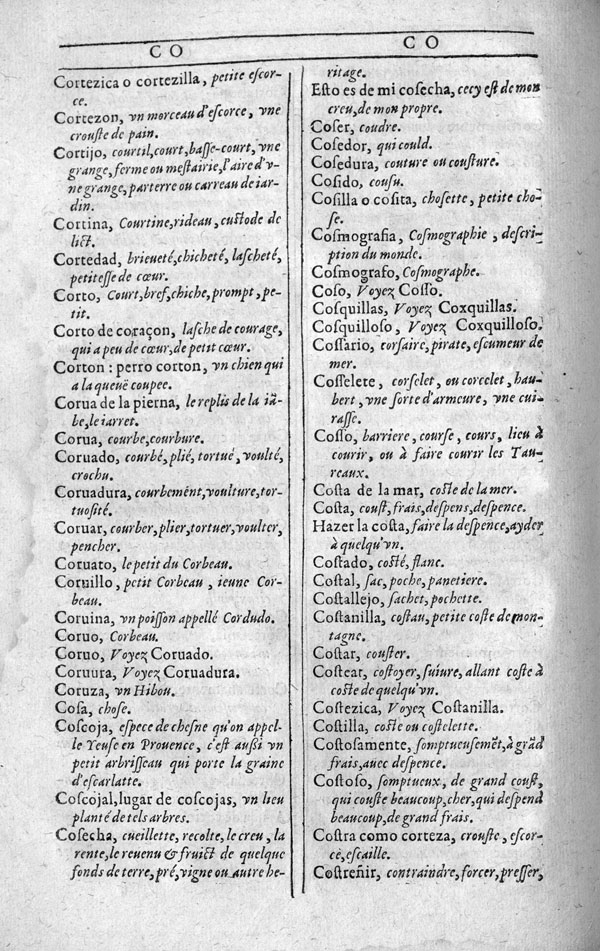 CO
CO
Cortezica o cortezilla, petite escor-
ce.
Cortezon, vn morceau d'escorce, vne
crouste de pain.
Cortijo, courtil, court, basse-court, vne
grange, ferme ou mestairie, l'aire d'v-
ne grange, parterre ou carreau de iar-
din.
Cortina, Courtine, rideau, custode de
lict.
Cortedad, brieueté, chicheté, lascheté,
petitesse de cœur.
Corto, Court, bref, chiche, prompt, pe-
tit.
Corto de coraçon, lasche de courage,
qui a peu de cœur, de petit cœur.
Corton : perro corton, vn chien qui
a la queuë coupee.
Corua de la pierna, le replis de la iã-
be, le iarret.
Corua, courbe, courbure.
Coruado, courbé, plié, tortué, voulté,
crochu.
Coruadura, courbemẽt, voulture, tor-
tuosité.
Coruar, courber, plier, tortuer, voulter,
pencher.
Coruato, le petit du Corbeau.
Coruillo, petit Corbeau, ieune Cor-
beau.
Coruina, vn poisson appellé Cordudo.
Coruo, Corbeau.
Coruo, Voyez Coruado.
Coruura, Voyez Coruadura.
Coruza, vn Hibou.
Cosa, chose.
Coscoja, espece de chesne qu'on appel-
le Yeuse en Prouence, c'est außi vn
petit arbrisseau qui porte la graine
d'escarlatte.
Coscojal, lugar de coscojas, vn lieu
planté de tels arbres.
Cosecha, cueillette, recolte, le creu, la
rente, le reuenu & fruict de quelque
fonds de terre, pré, vigne ou autre he-
ritage.
Esto es de mi cosecha, cecy est de mon
creu, de mon propre.
Coser, coudre.
Cosedor, qui could.
Cosedura, couture ou cousture.
Cosido, cousu.
Cosilla o cosita, chosette, petite cho-
se.
Cosmografia, Cosmographie, descri-
ption du monde.
Cosmografo, Cosmographe.
Coso, Voyez Cosso.
Cosquillas, Voyez Coxquillas.
Cosquilloso, Voyez Coxquilloso.
Cossario, corsaire, pirate, escumeur de
mer.
Cosselete, corselet, ou corcelet, hau-
bert, vne sorte d'armeure, vne cui-
rasse.
Cosso, barriere, course, cours, lieu à
courir, ou à faire courir les Tau-
reaux.
Costa de la mar, coste de la mer.
Costa, coust, frais, despens, despence.
Hazer la costa, faire la despence, ayder
à quelqu'vn.
Costado, costé, flanc.
Costal, sac, poche, panetiere.
Costallejo, sachet, pochette.
Costanilla, costau, petite coste de mon-
tagne.
Costar, couster.
Costear, costoyer, suiure, allant coste à
coste de quelqu'vn.
Costezica, Voyez Costanilla.
Costilla, coste ou costelette.
Costosamente, somptueusemẽt, à grãd
frais, auec despence.
Costoso, somptueux, de grand coust,
qui couste beaucoup, cher, qui despend
beaucoup, de grand frais.
Costra como corteza, crouste, escor-
ce, escaille.
Costreñir, contraindre, forcer, presser,